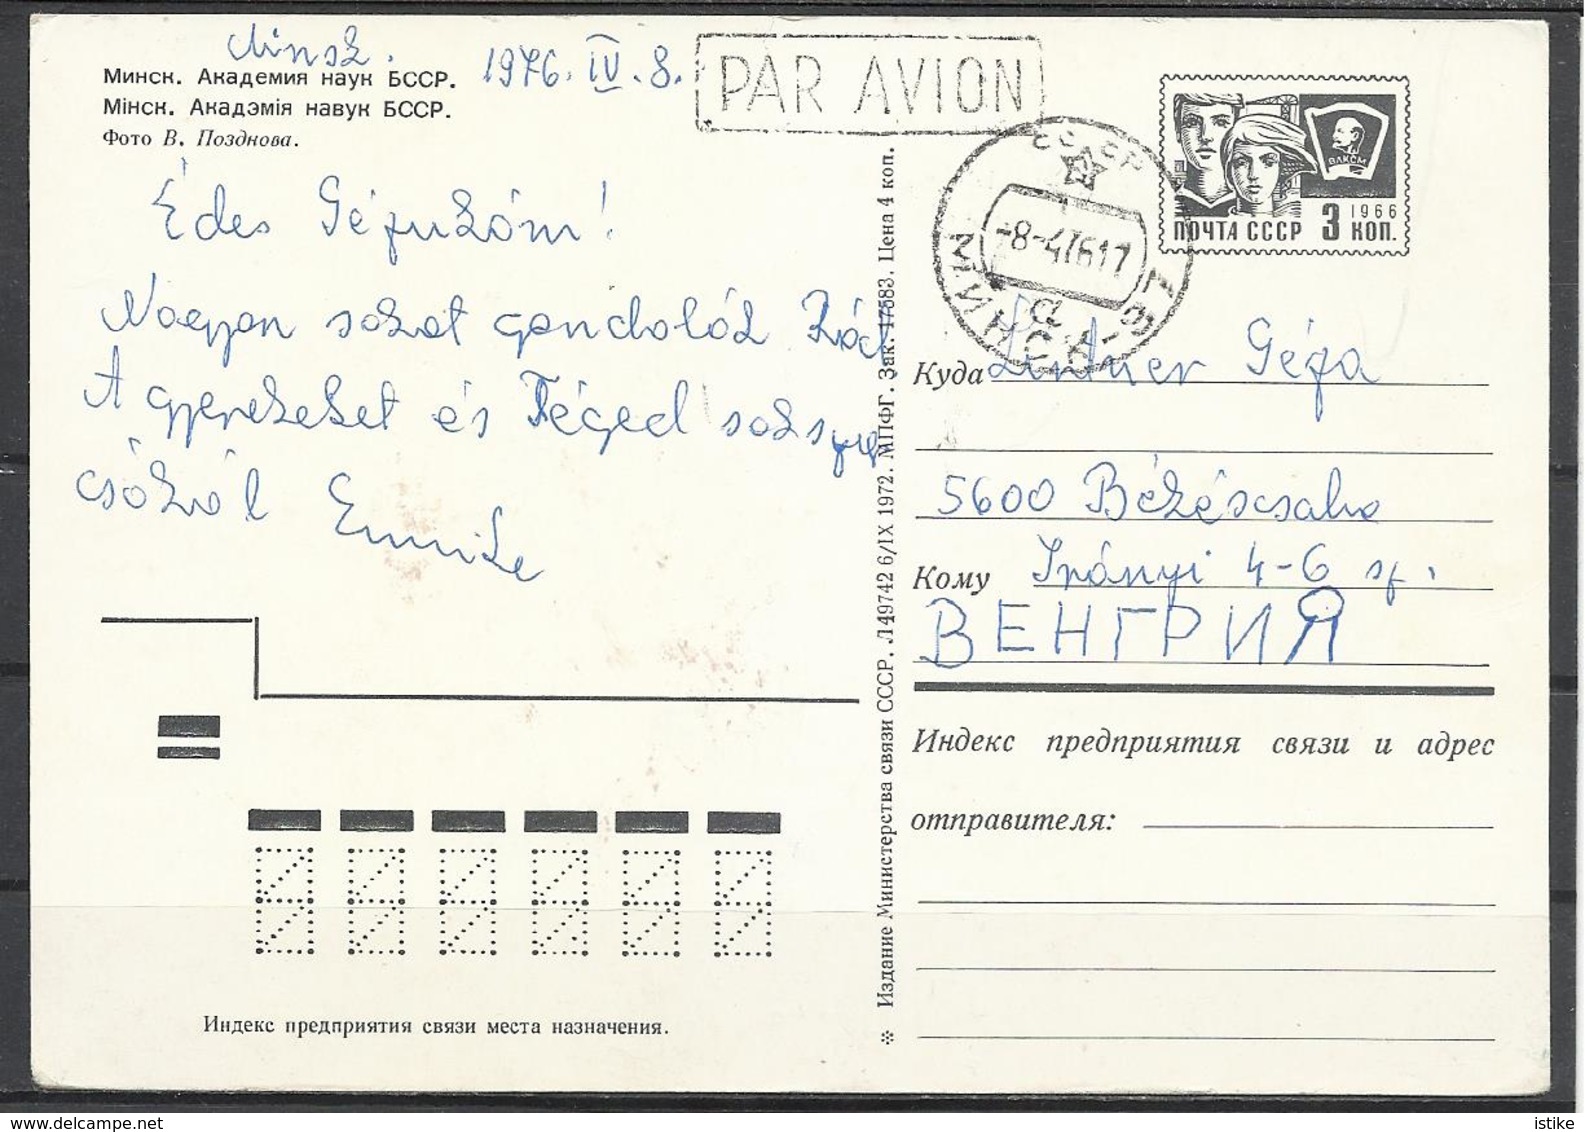 Minsk.
1976. IV. 8.
PAR AVION
Минск. Академия наук БССР.
Мінск. Акадэмія навук БССР.
Фото В. Позднова.
Édes Gézukóm!
Nagyon sokat gondolók Rád
A gyerekeket és Téged sokszor
csókól Emmike
СССР
-8-47617
МИНСК
ВЛКСМ
1966
ПОЧТА СССР 3 КОП.
Издание Министерства связи СССР. Л49742 6/IX 1972. МПФГ. Зак. 17583. Цена 4 коп.
Куда Lindner Géza
5600 Békéscsaba
Кому Irányi 4-6 sz.
ВЕНГРИЯ
Индекс предприятия связи и адрес
отправителя:
Индекс предприятия связи места назначения.
istike